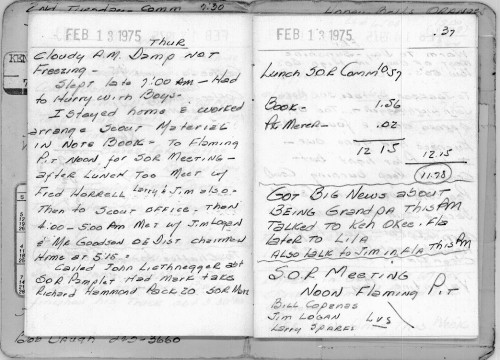 2nd Tuesday Comm 7:30
FEB 13 1975
Thur
Cloudy A.M. Damp NOT
Freezing -
Slept late 7:00 AM - Had
to Hurry with Boys -
I stayed home & worked
arrange Scout Materials
in Note Book - To Flaming
Pit Noon for SOR Meeting -
after Lunch Too Meet w/
Fred Horrell Larry & Jim also -
Then to Scout office - Then
4:00 - 5:00 AM Met w/ Jim Logan
& Mr Goodson OE Dist chairmen
Home at 5:15 -
Called John Liethnegger abt
SOR Pamplet Had Mark take
Richard Hammond Pack 20 SOR
Bob Laugh 3660
FEB 13 1975
.37
Lunch SOR Comm 10.37
Book - 1.56
Pk Meter - .02
12 15
12.15
11.78
GOT BIG News about
BEING Grandpa This AM
Talked to Ken Okee, Fla
Later to Lila
ALSO talk to Jim in, Fla This AM
S.O.R MEETING
NOON Flaming Pit
BILL Copenas
Jim LOGAN
Larry SPARKS
LVS